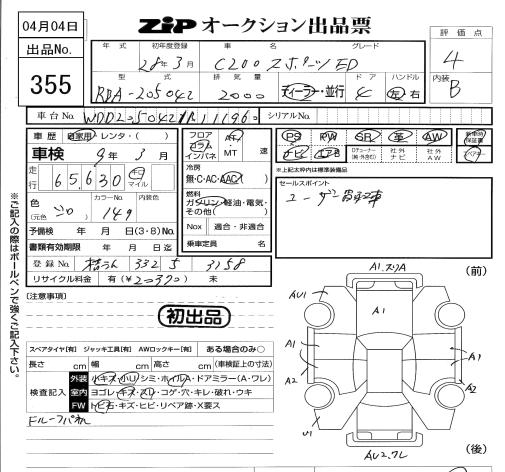 04月04日
ZIP オークション出品票
出品No.
355
評価点
4
内装
B
年式 初年度登録 車名 グレード
28年3月 C200 スポーツED
型式 排気量 ドア ハンドル
RBA-205042 2000 ディーラー・並行 4 左 右
車台No. シリアルNo.
車歴 自家用・レンタ・( )
フロア コラム インパネ
AT MT 速
PS PW SR 革 AW
新車時保証書
ナビ エアB 社外ナビ 社外AW
車検 9年3月
※上記太枠内は標準装備品
冷房
無・C・AC・AAC
走行 65,630 キロ マイル
セールスポイント
ユーザー買取車
燃料
ガソリン・軽油・電気・その他( )
色 (元色) シロ カラーNo. 149 内装色
予備検 年 月 日(3・8)No.
Nox 適合・非適合
書類有効期限 年 月 日迄
乗車定員 名
登録No. 332 3158
リサイクル料金 有(¥ ) 未
[注意事項]
初出品
スペアタイヤ[有] ジャッキ工具[有] AWロックキー[有] ある場合のみ○
長さ cm 幅 cm 高さ cm (車検証上の寸法)
検査記入
外装 小キズ・小U・シミ・ホイルA・ドアミラー(A・ワレ)
室内 ヨゴレ・キズ・スレ・コゲ・穴・キレ・破れ・ウキ
FW トビ石・キズ・ヒビ・リペア跡・X要ス
※ご記入の際はボールペンで強くご記入下さい。
(前)
A1.スリA
AU1
A1
A1
A1
A2
A2
U1
AU2.ワレ
(後)